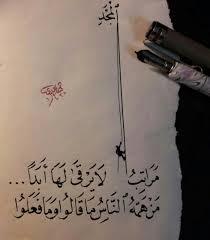 المَجْدِ
مَرَاتِبُ لَا يَرْقَى لَهَا أَبَدًا...
مَنْ هَمُّهُ النَّاسُ مَا قَالُوا وَمَا فَعَلُوا